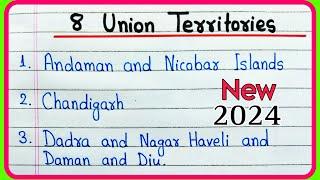 8 Union Territories
1. Andaman and Nicobar Islands
2. Chandigarh
New
2024
3. Dadra and Nagar Haveli and
Daman and Diu.